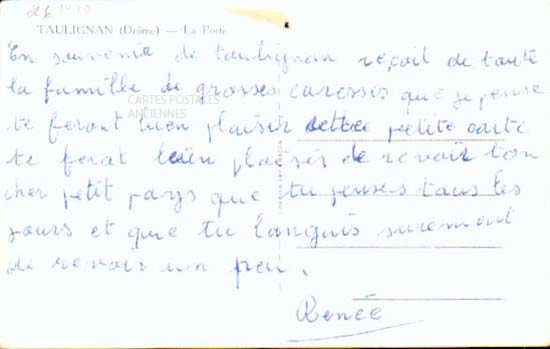 TAULIGNAN (Drôme) — La Porte
En souvenir de taulignan reçoit de toute
la famille de grosses caresses que je pense
te feront bien plaisir cette petite carte
te ferat bien plaisir de revoir ton
cher petit pays que tu penses tous les
jours et que tu languis surement
de revoir un peu.
Renée
CARTES POSTALES
ANCIENNES